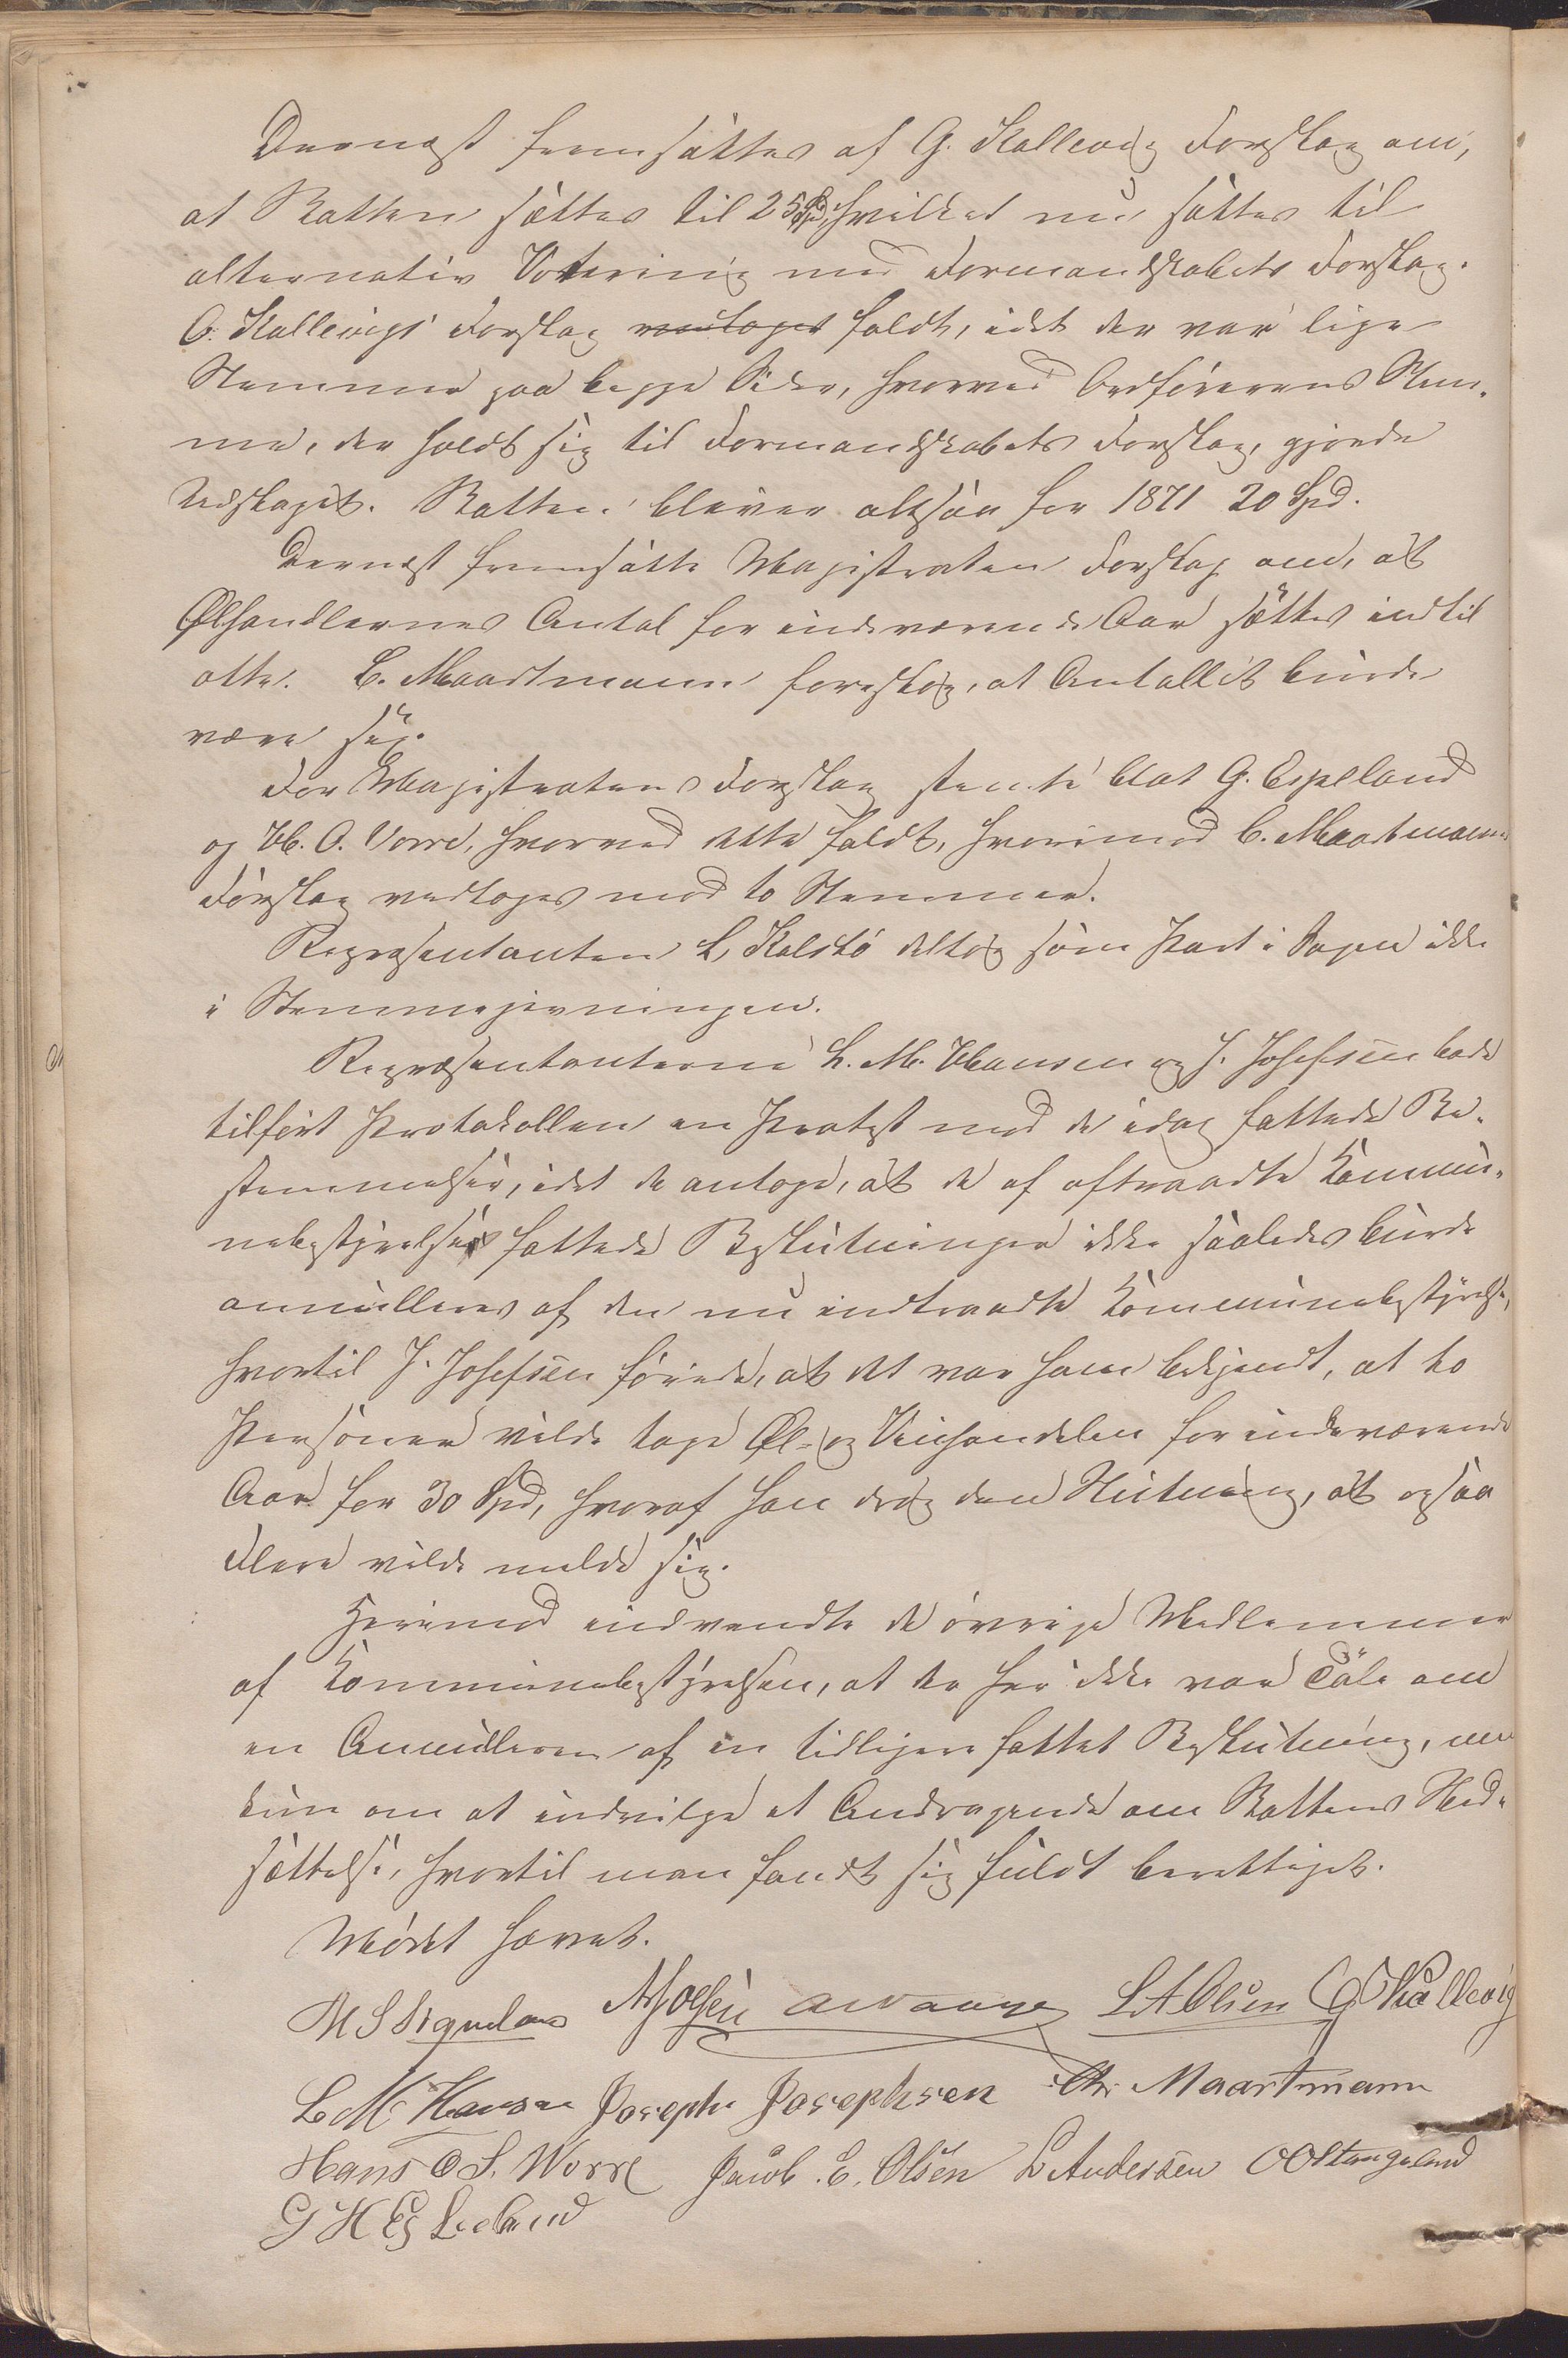 Dernæst fremsattes af G. Kallevig Forslag om,
at Skatten sættes til 25 Spd, hvilket nu sattes til
alternativ Votering med Formandskabets Forslag.
G. Kallevigs Forslag vedtoges faldt, idet der var lige
Stemmer paa begge Sider, hvorved Ordførerens Stem-
me, der holdt sig til Formandskabets Forslag, gjorde
Udslaget. Skatten bliver altsaa for 1871 20 Spd.
Dernæst fremsatte Magistraten Forslag om, at
Ølhandlernes Antal for indeværende Aar sættes indtil
otte. C. Maartmann foreslog, at Antallet burde
være sex.
For Magistratens Forslag stemte blot G. Espeland
og H. O. Vorre, hvorved dette faldt, hvorimod C. Maartmanns
Forslag vedtoges mod to Stemmer.
Repræsentanten L. Kalstø deltog som Part i Sagen ikke
i Stemmegivningen.
Repræsentanterne L. M. Hansen og J. Josefsen bade
tilført Protokollen en Protest mod de idag fattede Be-
stemmelser, idet de antoge, at de af aftraadte Kommu-
nebestyrelser fattede Beslutninger ikke saaledes burde
annulleres af den nu indtraadte Kommunebestyrelse,
hvortil J. Josefsen føiede, at det var ham bekjendt, at to
Personer vilde tage Øl- og Vinhandelen for indeværende
Aar for 30 Spd, hvoraf han drog den Slutning, at ogsaa
Flere vilde melde sig.
Herimod indvendte de øvrige Medlemmer
af Kommunebestyrelsen, at der her ikke var Tale om
en Annulleren af en tidligere fattet Beslutning, men
kun om at indvilge et Andragende om Skattens Ned-
sættelse, hvortil man fandt sig fuldt berettiget.
Mødet hævet.
L A Olsen G Kallevig
L M Hansen Joseph Josephsen Chr Maartmann
Hans O S. Worre Jacob. E. Olsen L Andersen O O Stangeland
G H Espeland